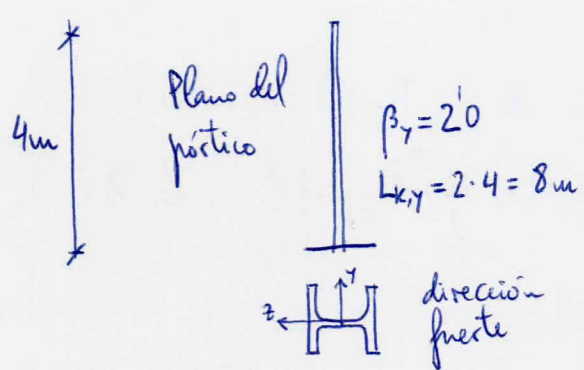 4m
Plano del
pórtico
βy = 2'0
Lk,y = 2·4 = 8m
y
z
dirección
fuerte